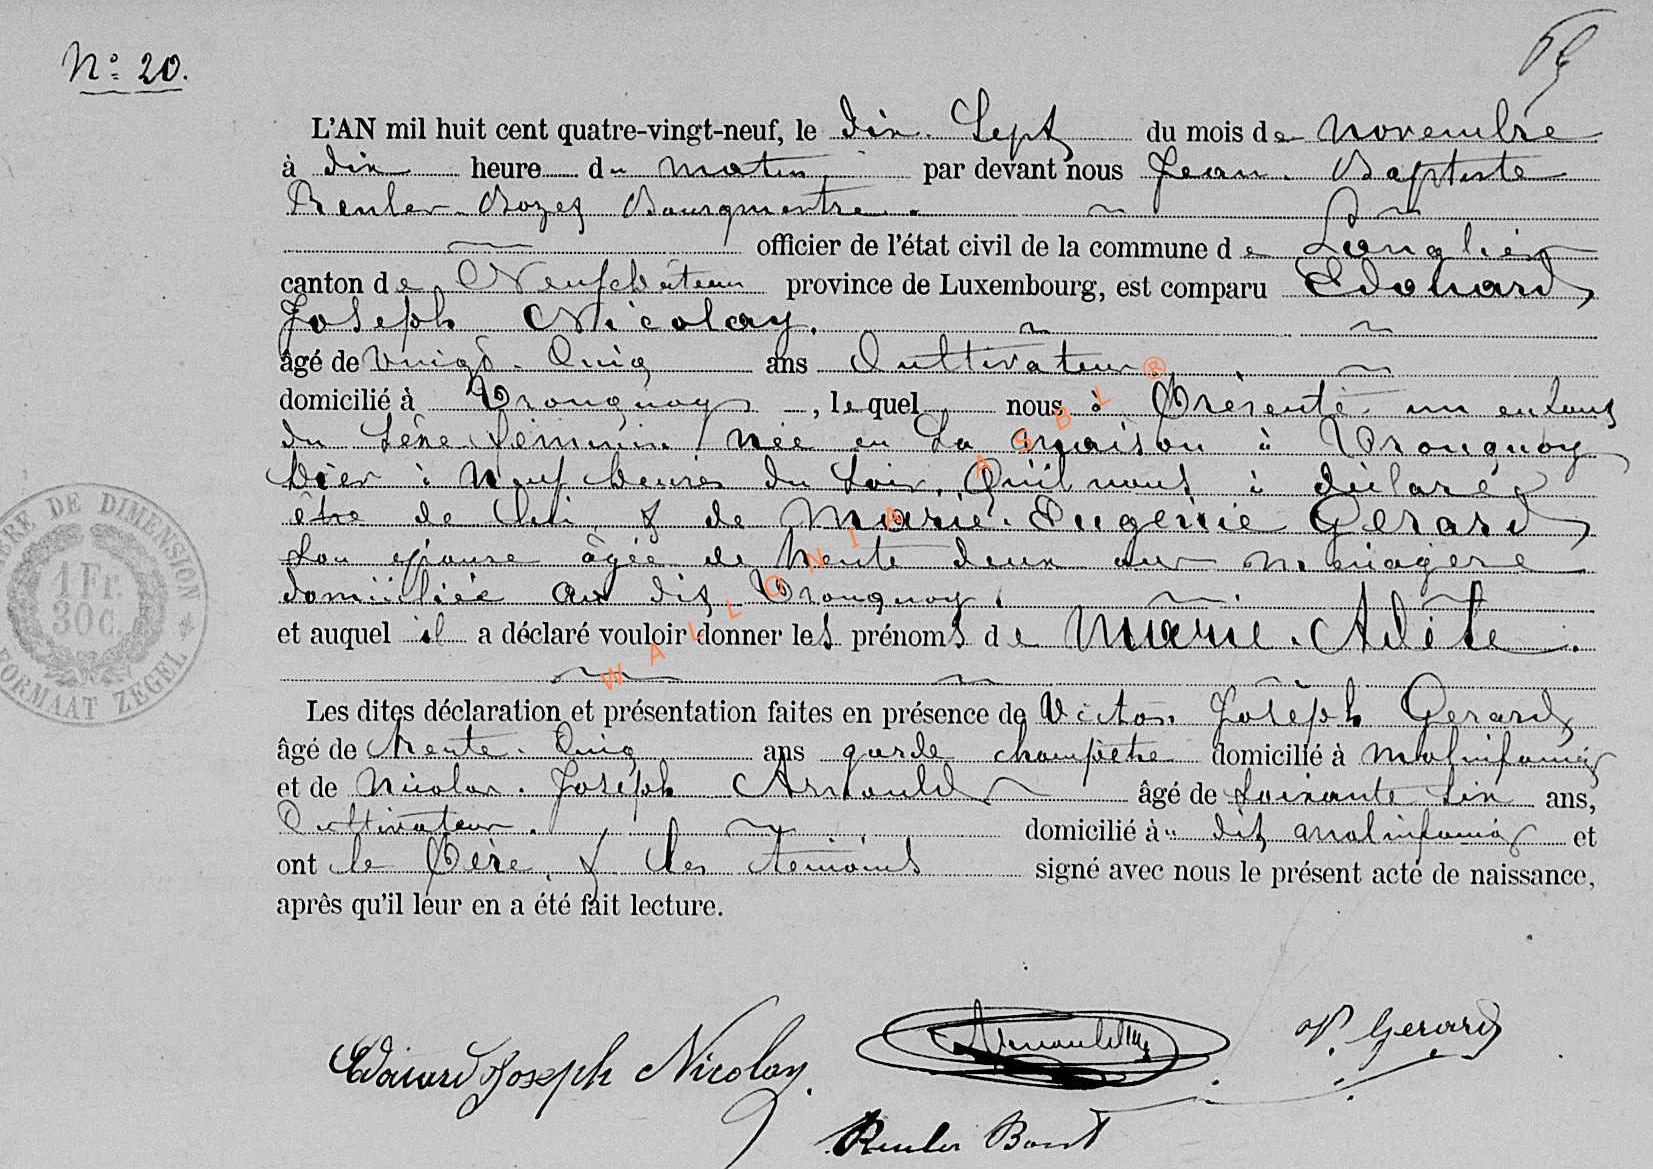 N° 20.
L'AN mil huit cent quatre-vingt-neuf, le dix-Sept du mois de novembre
à dix heure du matin, par devant nous Jean-Baptiste
Reuler Bourgmestre.
officier de l'état civil de la commune de Longlier
canton de Neufchâteau province de Luxembourg, est comparu Edouard
Joseph Nicolay.
âgé de vingt-Cinq ans Cultivateur
domicilié à Tronquoy, lequel nous à Présenté un enfant
du Sexe féminin née en Sa maison à Tronquoy
hier à Neuf heures du Soir, Qu'il nous à déclaré
être de lui & de Marie-Eugénie Gerard,
Son épouse âgée de trente deux ans menagère
domiciliée au dit Tronquoy.
et auquel il a déclaré vouloir donner les prénoms de Marie-Adèle.
Les dites déclaration et présentation faites en présence de Victor Joseph Gerard
âgé de trente-Cinq ans garde champêtre domicilié à Molinfaing
et de Nicolas-Joseph Arnould âgé de Soixante Six ans,
Cultivateur. domicilié à dit Molinfaing et
ont le Père, & les témoins signé avec nous le présent acte de naissance,
après qu'il leur en a été fait lecture.
Edouard Joseph Nicolay.
V. Gerard
Reuler
TIMBRE DE DIMENSION
1 Fr.
30 C.
FORMAAT ZEGEL
WALLONIA ASBL ®